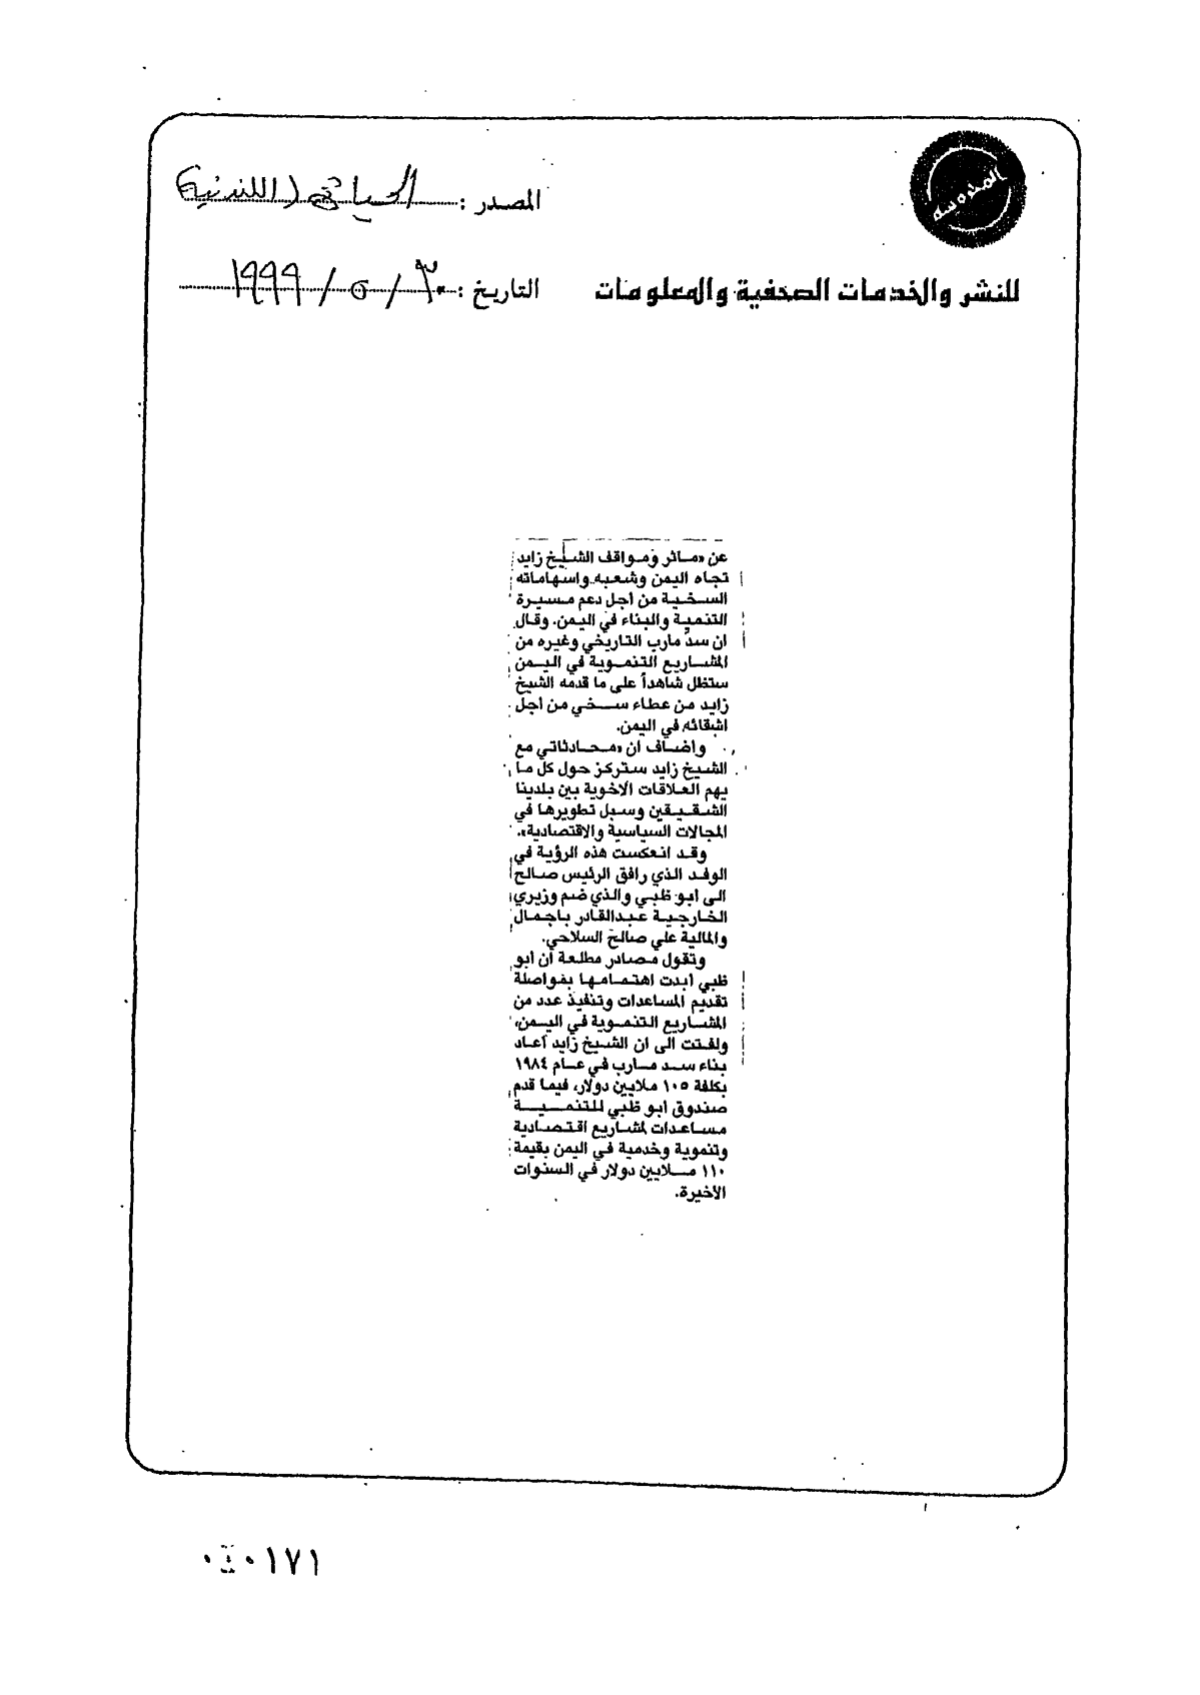 المحروسة
المصدر : الحياة (اللندنية)
للنشر والخدمات الصحفية والمعلومات
التاريخ : ٣٠ / ٥ / ١٩٩٩
عن «مآثر ومواقف الشيخ زايد
تجاه اليمن وشعبه واسهاماته
السخية من أجل دعم مسيرة
التنمية والبناء في اليمن. وقال
ان سدّ مأرب التاريخي وغيره من
المشاريع التنموية في اليمن
ستظل شاهداً على ما قدمه الشيخ
زايد من عطاء سخي من أجل
اشقائه في اليمن.
واضاف ان «محادثاتي مع
الشيخ زايد ستركز حول كل ما
يهم العلاقات الاخوية بين بلدينا
الشقيقين وسبل تطويرها في
المجالات السياسية والاقتصادية».
وقد انعكست هذه الرؤية في
الوفد الذي رافق الرئيس صالح
الى ابو ظبي والذي ضم وزيري
الخارجية عبدالقادر باجمال
والمالية علي صالح السلاحي.
وتقول مصادر مطلعة ان ابو
ظبي أبدت اهتمامها بمواصلة
تقديم المساعدات وتنفيذ عدد من
المشاريع التنموية في اليمن،
ولفتت الى ان الشيخ زايد أعاد
بناء سد مأرب في عام ١٩٨٤
بكلفة ١٠٥ ملايين دولار، فيما قدم
صندوق ابو ظبي للتنمية
مساعدات لمشاريع اقتصادية
وتنموية وخدمية في اليمن بقيمة
١١٠ ملايين دولار في السنوات
الأخيرة.